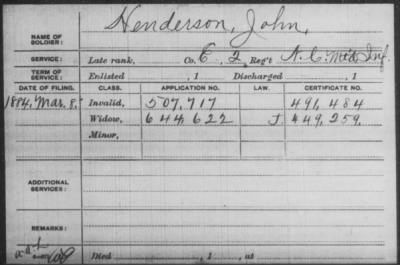 Henderson, John,
NAME OF SOLDIER:
SERVICE: Late rank, Co. E, 2, Reg't N.C. Mtd. Inf.
TERM OF SERVICE: Enlisted , 1 Discharged , 1
DATE OF FILING. CLASS. APPLICATION NO. LAW. CERTIFICATE NO.
1884, Mar. 8, Invalid, 507,717 491,484
Widow, 644,622 J. 449,259.
Minor,
ADDITIONAL SERVICES:
REMARKS:
Died , 1 , at